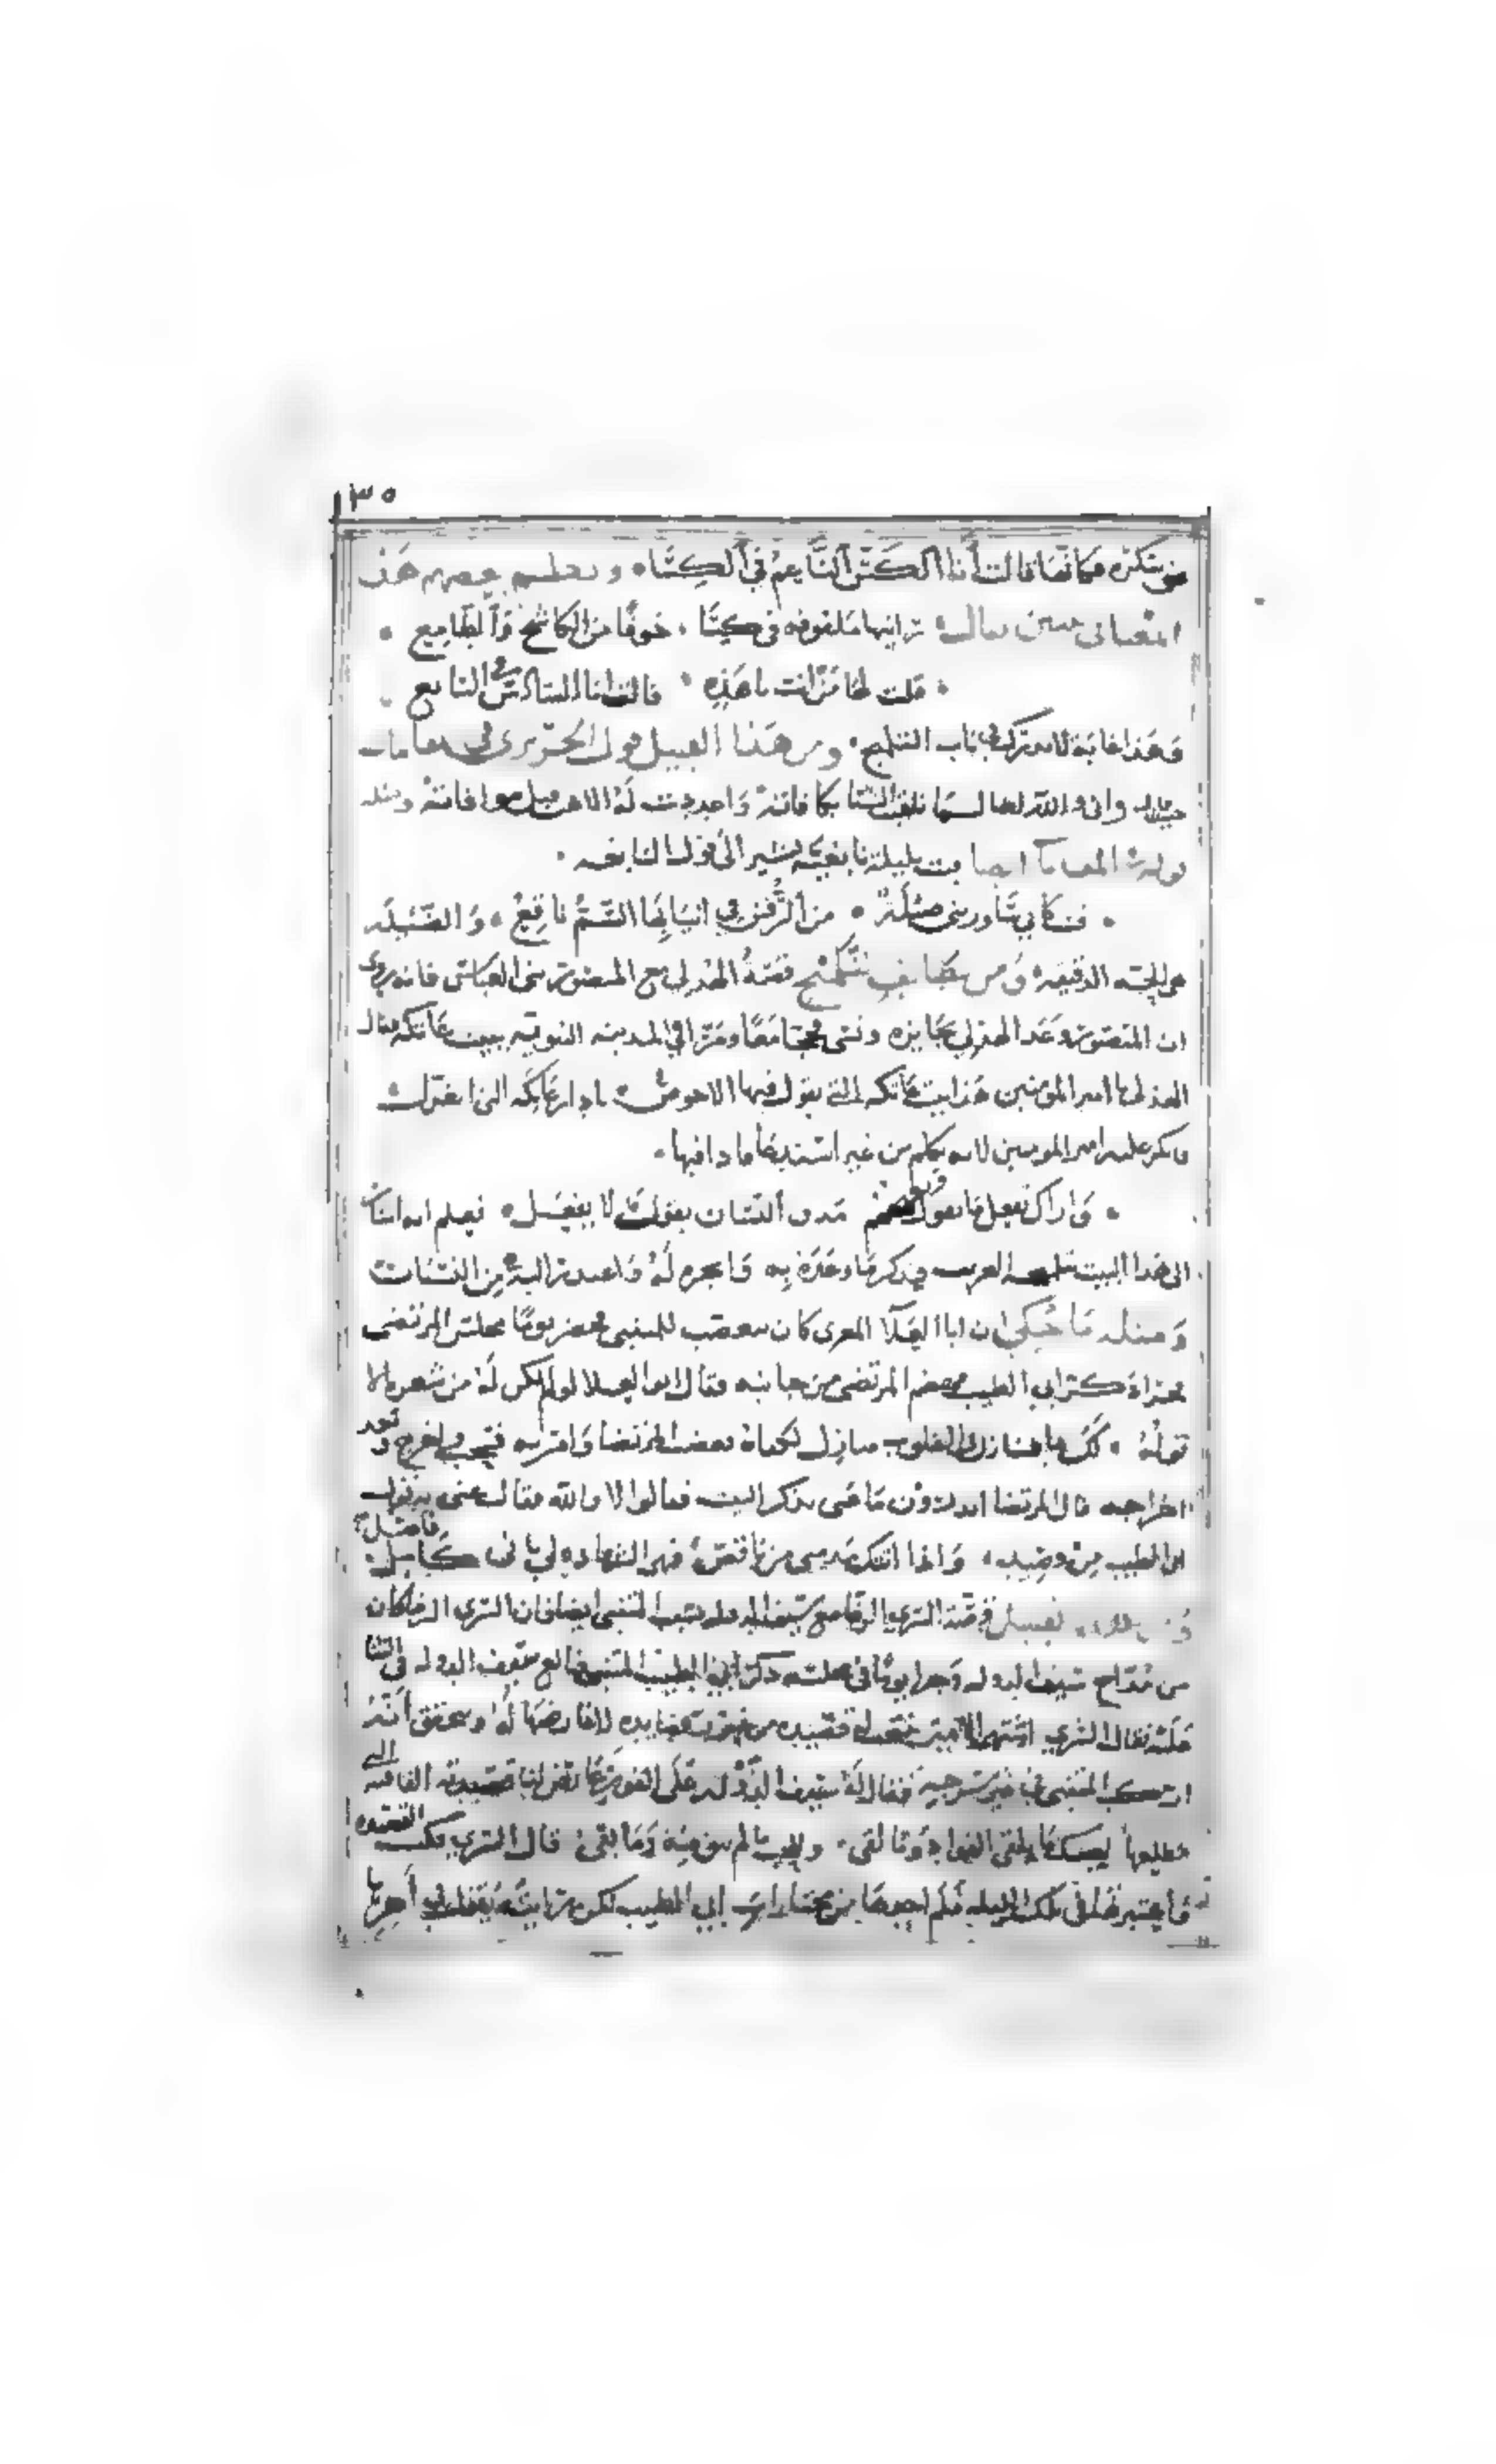 ٣٥
من سكره فكانها قالت أنا الكس الناعم في الكسا ونظم بعضهم هذا
المعنى حسن فقال رايتها ملفوفه في كسا خوفا من الكاشح والطامع
قلت لها من انت يا هذه قالت انا السادس في التاسع
وهذا غاية لا تدرك في باب التلميح ومن هذا القبيل قول الحريري في مقامات
واني والله لطالما تلقيت الشتا بكافاته واعددت له الاهب قبل موافاته ومثله
قوله في المقامات ايضا بت بليلة نابغية يشير الى قول النابغه
فبت كاني ساورتني ضئيلة من الرقش في انيابها السم ناقع والضئيله
هي الحيه الدقيقه ومن لطايف التلميح قصة الهذلي مع المنصور بني العباس فانه روي
ان المنصور وعد الهذلي بجايزه ونسي فحجا معا ومرا في المدينه النبويه ببيت عاتكه فقال
الهذلي يا امير المومنين هذا بيت عاتكه التي يقول فيها الاحوص يا دار عاتكه التي اتغزل
فانكر عليه امير المومنين لانه تكلم من غير استنديها ما دا فيها
واراك تفعل ما تقول وبعضهم مذق اللسان يقول ما لا يفعل فعلم انه اشار
الى هذا البيت فتذكر ما وعده به وانجزه له واعتذر اليه من النسيان
ومثله ما حكي ان ابا العلا المعري كان يتعصب للمتنبي فحضر يوما مجلس المرتضى
فجرى ذكر ابي الطيب فهضم المرتضى من جانبه فقال ابو العلا لو لم يكن له من شعره الا
قوله لك يا منازل في القلوب منازل لكفاه فغضب المرتضا وامر به فسحب واخرج وبعد
اخراجه قال المرتضا اتدرون ما عنى بذكر البيت فقالوا لا والله فقال عنى به قول
ابي الطيب من قصيده واذا اتتك مذمتي من ناقص فهي الشهاده لي باني كامل فاضل
ومن هذا القبيل قصة السري الرفا مع سيف الدوله بسبب المتنبي ايضا فان السري الرفا كان
من مداح سيف الدوله وجرا يوما في مجلسه ذكر ابي الطيب المتنبي فبالغ سيف الدوله في الثنا
عليه فقال السري اشتهي الامير ينتخب لي قصيده من غرر قصايده لاعارضها له ويتحقق انه
اركب المتنبي في غير سرجه فقال له سيف الدوله على الفور عارض لنا قصيدته القافيه التي
مطلعها لعينيك ما يلقى الفواد وما لقي وللحب ما لم يبق مني وما بقي قال السري فكتبت القصيده
واعتبرتها في تلك الليله فلم اجدها من مختارات ابي الطيب لكن رايته يقول في اخرها